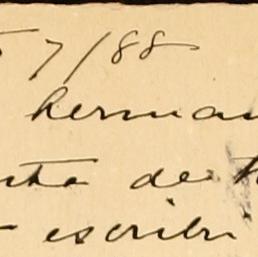 7/88
herman
nta de
escribi